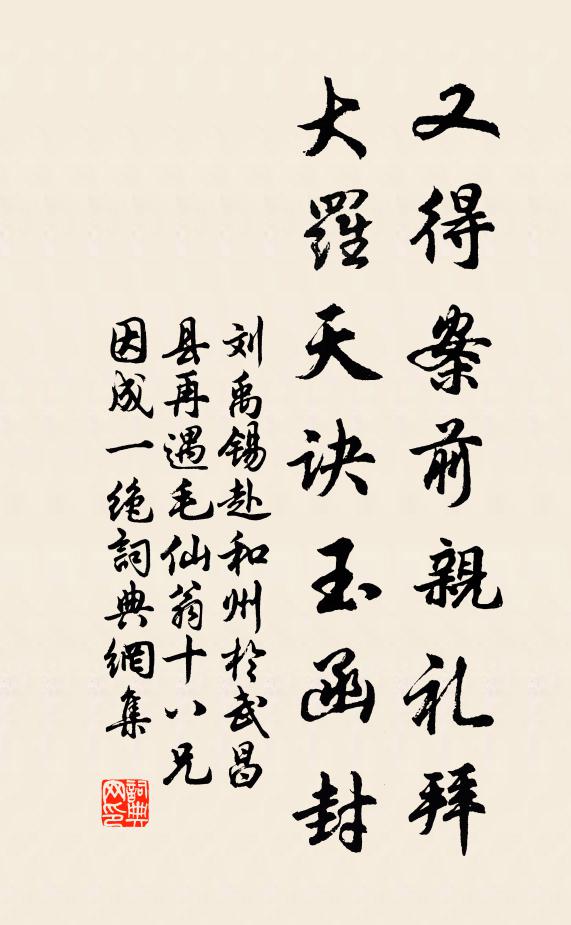 又得案前親礼拜
大羅天訣玉函封
刘禹锡赴和州於武昌
县再遇毛仙翁十八兄
因成一绝詞典網集
詞典
网印